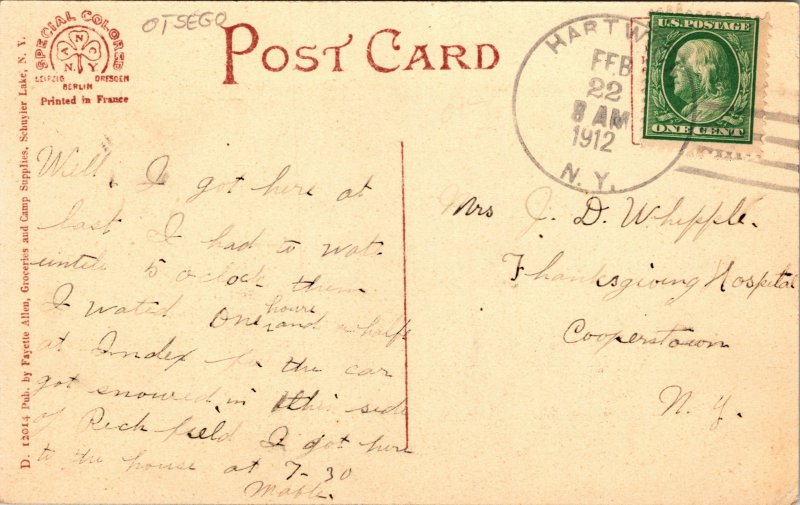 OTSEGO
SPECIAL COLORED
ANCO
N.Y.
LEIPZIG DRESDEN
BERLIN
Printed in France
POST CARD
HARTW
FEB
22
8 AM
1912
N.Y.
U.S. POSTAGE
ONE CENT
D. 12014 Pub. by Fayette Allen, Groceries and Camp Supplies, Schuyler Lake, N. Y.
Well, I got here at
last I had to wate
untill 5 oclock then
I wated One houre and a halfe
at Index for the car
got snowed in this side
of Richfield I got here
to the house at 7-30
Mrs J. D. Whipple.
Thanksgiving Hospital
Cooperstown
N. Y.